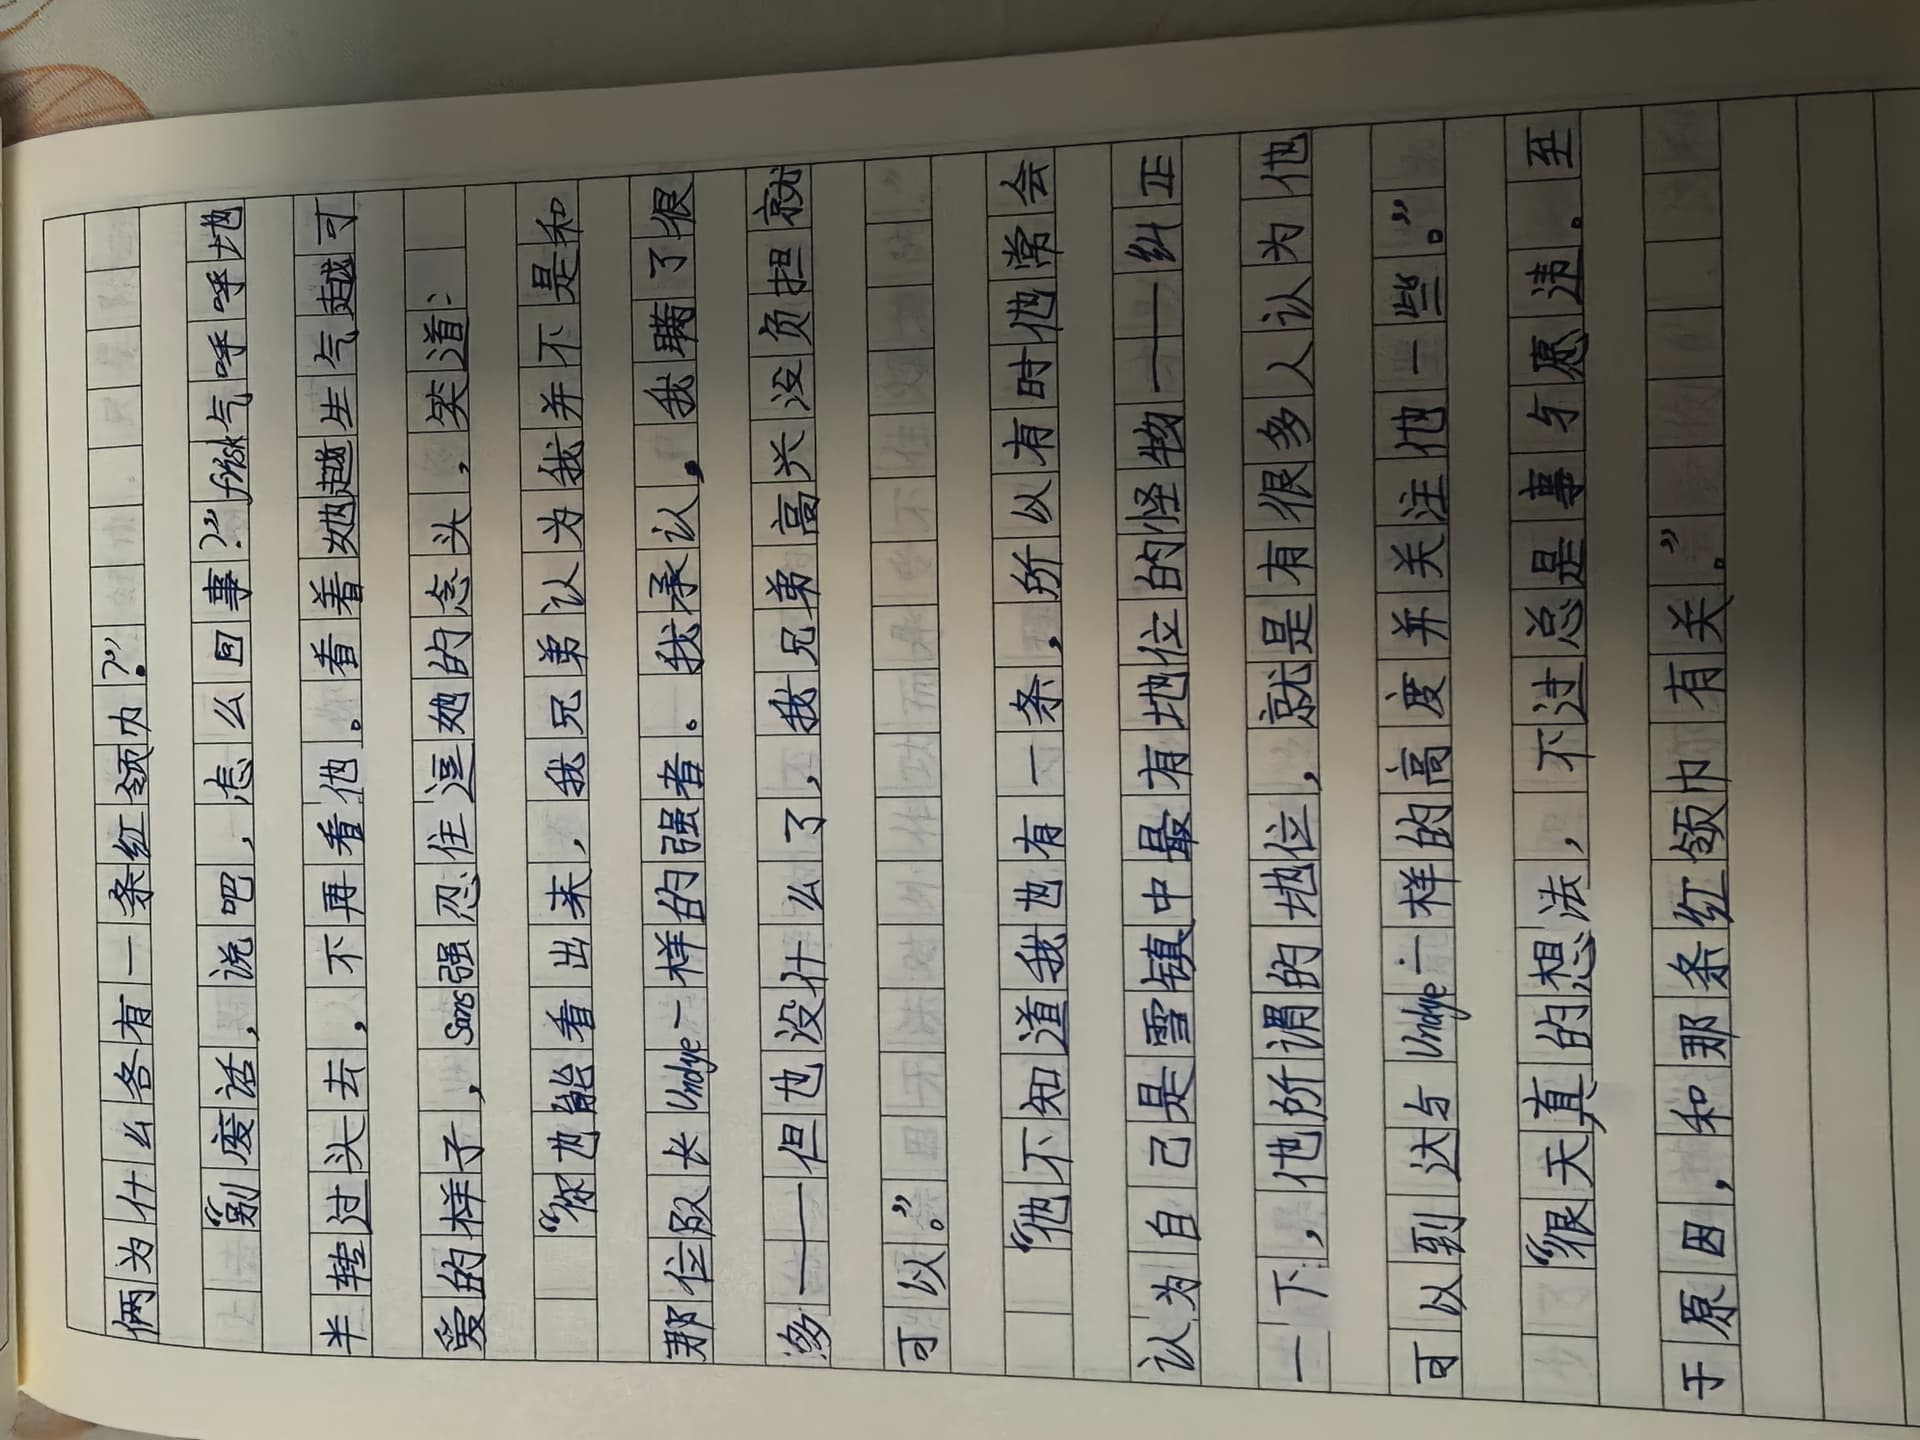 俩为什么各有一条红领巾?”
“别废话，说吧，怎么回事?”frisk气呼呼地
半转过头去，不再看他。看着她越生气越可
爱的样子，Sans强忍住逗她的念头，笑道：
“你也能看出来，我兄弟认为我并不是和
那位队长Undye一样的强者。我承认，我瞒了很
多——但也没什么了，我兄弟高兴没负担就
可以。”
“他不知道我也有一条，所以有时他常会
认为自己是雪镇中最有地位的怪物——纠正
一下，他所谓的地位，就是有很多人认为他
可以到达与Undye一样的高度并关注他一些。”
“很天真的想法，不过总是事与愿违。至
于原因，和那条红领巾有关。”